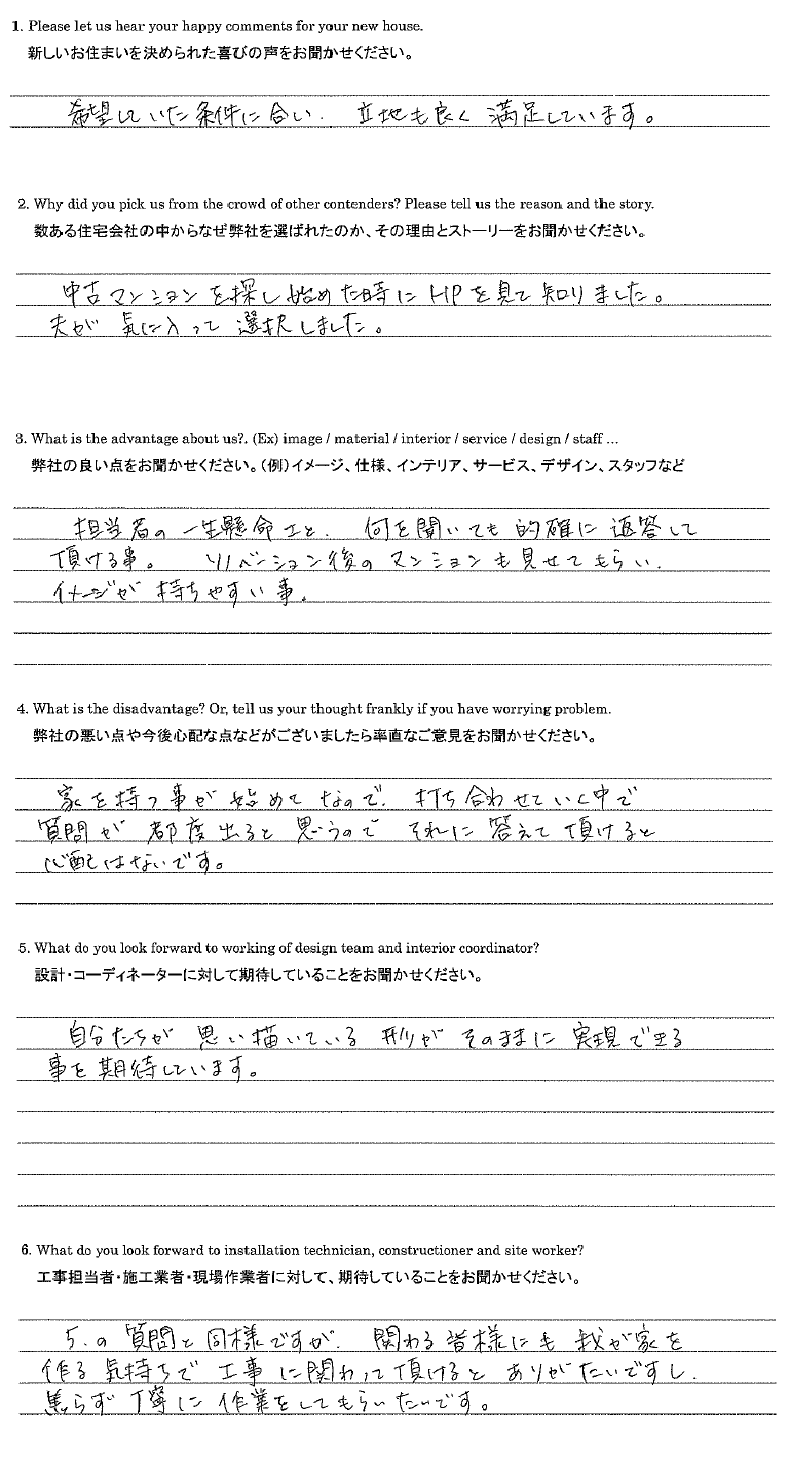 1. Please let us hear your happy comments for your new house.
新しいお住まいを決められた喜びの声をお聞かせください。
希望していた条件に合い、立地も良く満足しています。
2. Why did you pick us from the crowd of other contenders? Please tell us the reason and the story.
数ある住宅会社の中からなぜ弊社を選ばれたのか、その理由とストーリーをお聞かせください。
中古マンションを探し始めた時にHPを見て知りました。
夫が気に入って選択しました。
3. What is the advantage about us?. (Ex) image / material / interior / service / design / staff ...
弊社の良い点をお聞かせください。(例)イメージ、仕様、インテリア、サービス、デザイン、スタッフなど
担当者の一生懸命さと、何を聞いても的確に返答して
頂ける事。リノベーション後のマンションも見せてもらい、
イメージが持ちやすい事。
4. What is the disadvantage? Or, tell us your thought frankly if you have worrying problem.
弊社の悪い点や今後心配な点などがございましたら率直なご意見をお聞かせください。
家を持つ事が始めてなので、打ち合わせていく中で
質問が都度出ると思うのでそれに答えて頂けると
心配はないです。
5. What do you look forward to working of design team and interior coordinator?
設計・コーディネーターに対して期待していることをお聞かせください。
自分たちが思い描いている形がそのままに実現できる
事を期待しています。
6. What do you look forward to installation technician, constructioner and site worker?
工事担当者・施工業者・現場作業者に対して、期待していることをお聞かせください。
5.の質問と同様ですが、関わる皆様にも我が家を
作る気持ちで工事に関わって頂けるとありがたいですし、
焦らず丁寧に作業をしてもらいたいです。